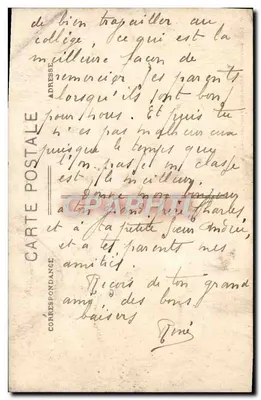 de bien travailler au
collège, ce qui est la
meilleure façon de
remercier ses parents
lorsqu'ils sont bons
pour nous. Et puis tu
n'es pas malheureux
puisque le temps que
l'on passe en classe
est le meilleur.
Donne mon bonjour
à ton Charles
et à ta petite sœur Andrée,
et à tes parents mes
amitiés.
Reçois de ton grand
ami des bons
baisers
René
CARTE POSTALE
CORRESPONDANCE
ADRESSE